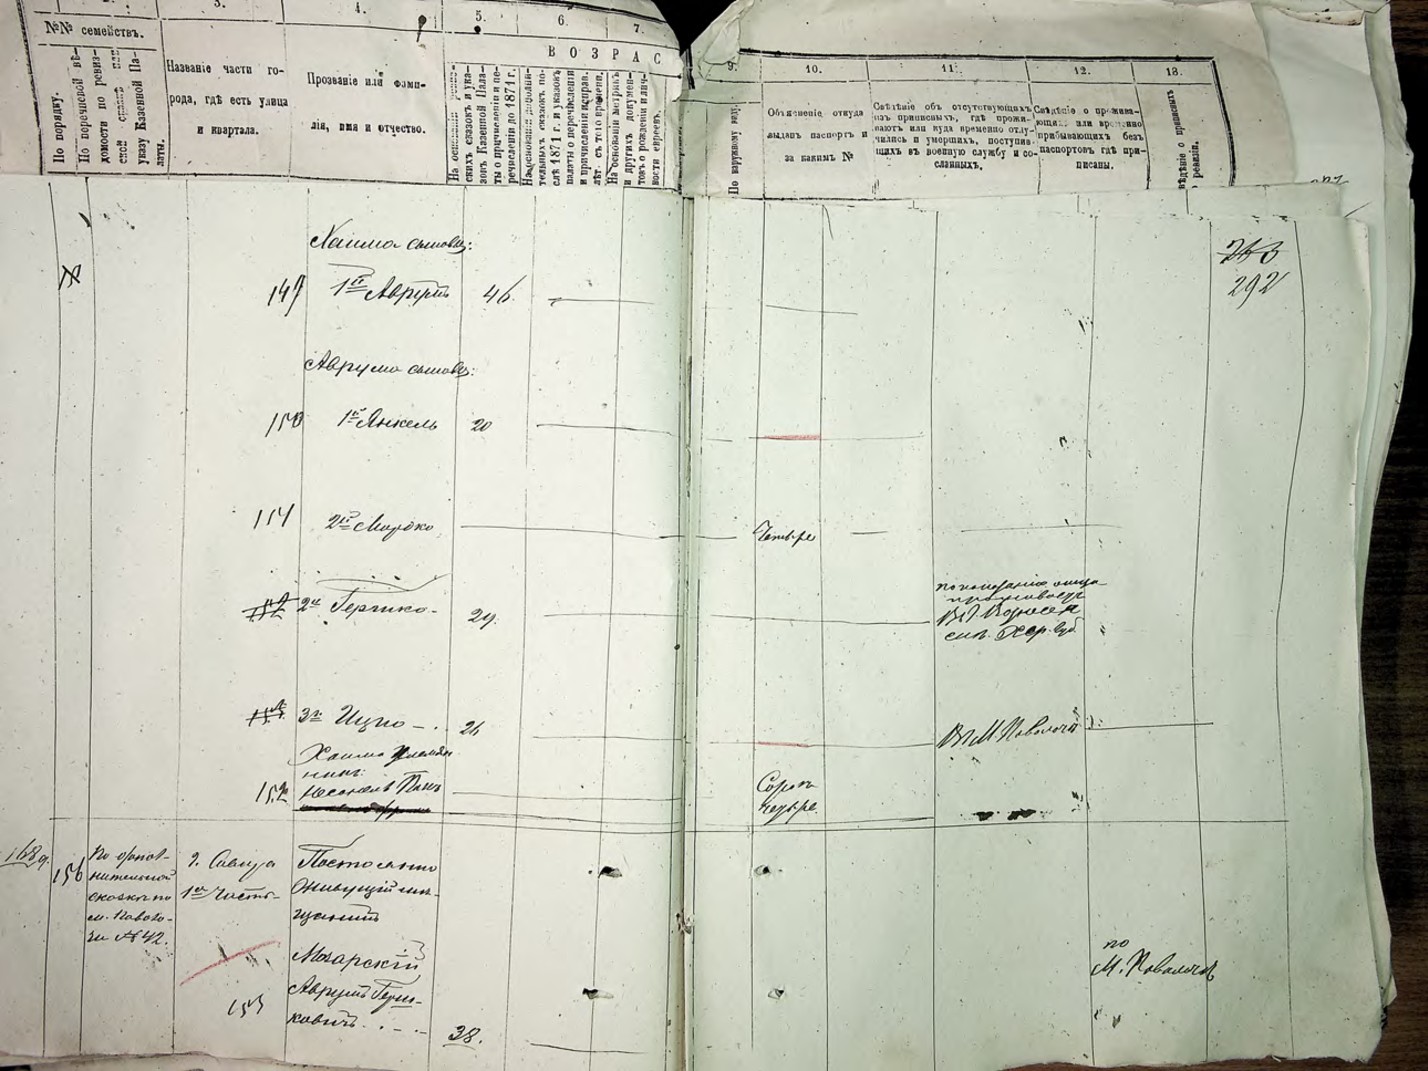 3.
4.
5.
6.
7.
9.
10.
11.
12.
13.
№№ семействъ.
По порядку.
По перечневой вѣ-
домости по ревиз-
ской
указу Казенной Па-
латы.
Названіе части го-
рода, гдѣ есть улица
и квартала.
Прозваніе или фами-
лія, имя и отчество.
ВОЗРАС
На основаніи ревиз-
скихъ сказокъ и ука-
зовъ Казенной Пала-
ты о причисленіи и пе-
речисленіи до 1871 г.
На основаніи дополни-
тельныхъ сказокъ по-
слѣ 1871 г. и указовъ
палаты о перечисленіи
и причисленіи исправ.
лѣт. съ того времени.
На основаніи метрикъ
и другихъ докумен-
товъ о рожденіи и лич-
ности евреевъ.
По наружному виду.
Объясненіе откуда
выданъ паспортъ и
за какимъ №
Свѣдѣніе объ отсутствующихъ
изъ приписныхъ, гдѣ прожи-
ваютъ или куда временно отлу-
чились и умершихъ, поступив-
щихъ въ военную службу и со-
сланныхъ.
Свѣдѣніе о прожива-
ющихъ или временно
прибывающихъ безъ
паспортовъ гдѣ при-
писаны.
вѣдѣніе о приписныхъ
ревизіи.
Хаима сыновья:
253
292
149 1й Аврумъ 46.
Аврума сыновья:
150 1й Янкель 20
151 2й Мордко Четыре
2й Гершко 29.
по показанію отца
проживаетъ
Въ г. Вознесен
Хер. губ.
3й Ицко 26 Въ М. Паволочи
Хаима племян
никъ
152
Сорокъ
четыре.
156 По допол-
нительной
сказкѣ по
м. Паволо-
чи №42.
г. Сквира
1я Часть
Постоянно
живущій мѣ-
щанинъ
Махарскій
153 Аврумъ Герш-
ковичъ 38.
по
М. Паволочѣ